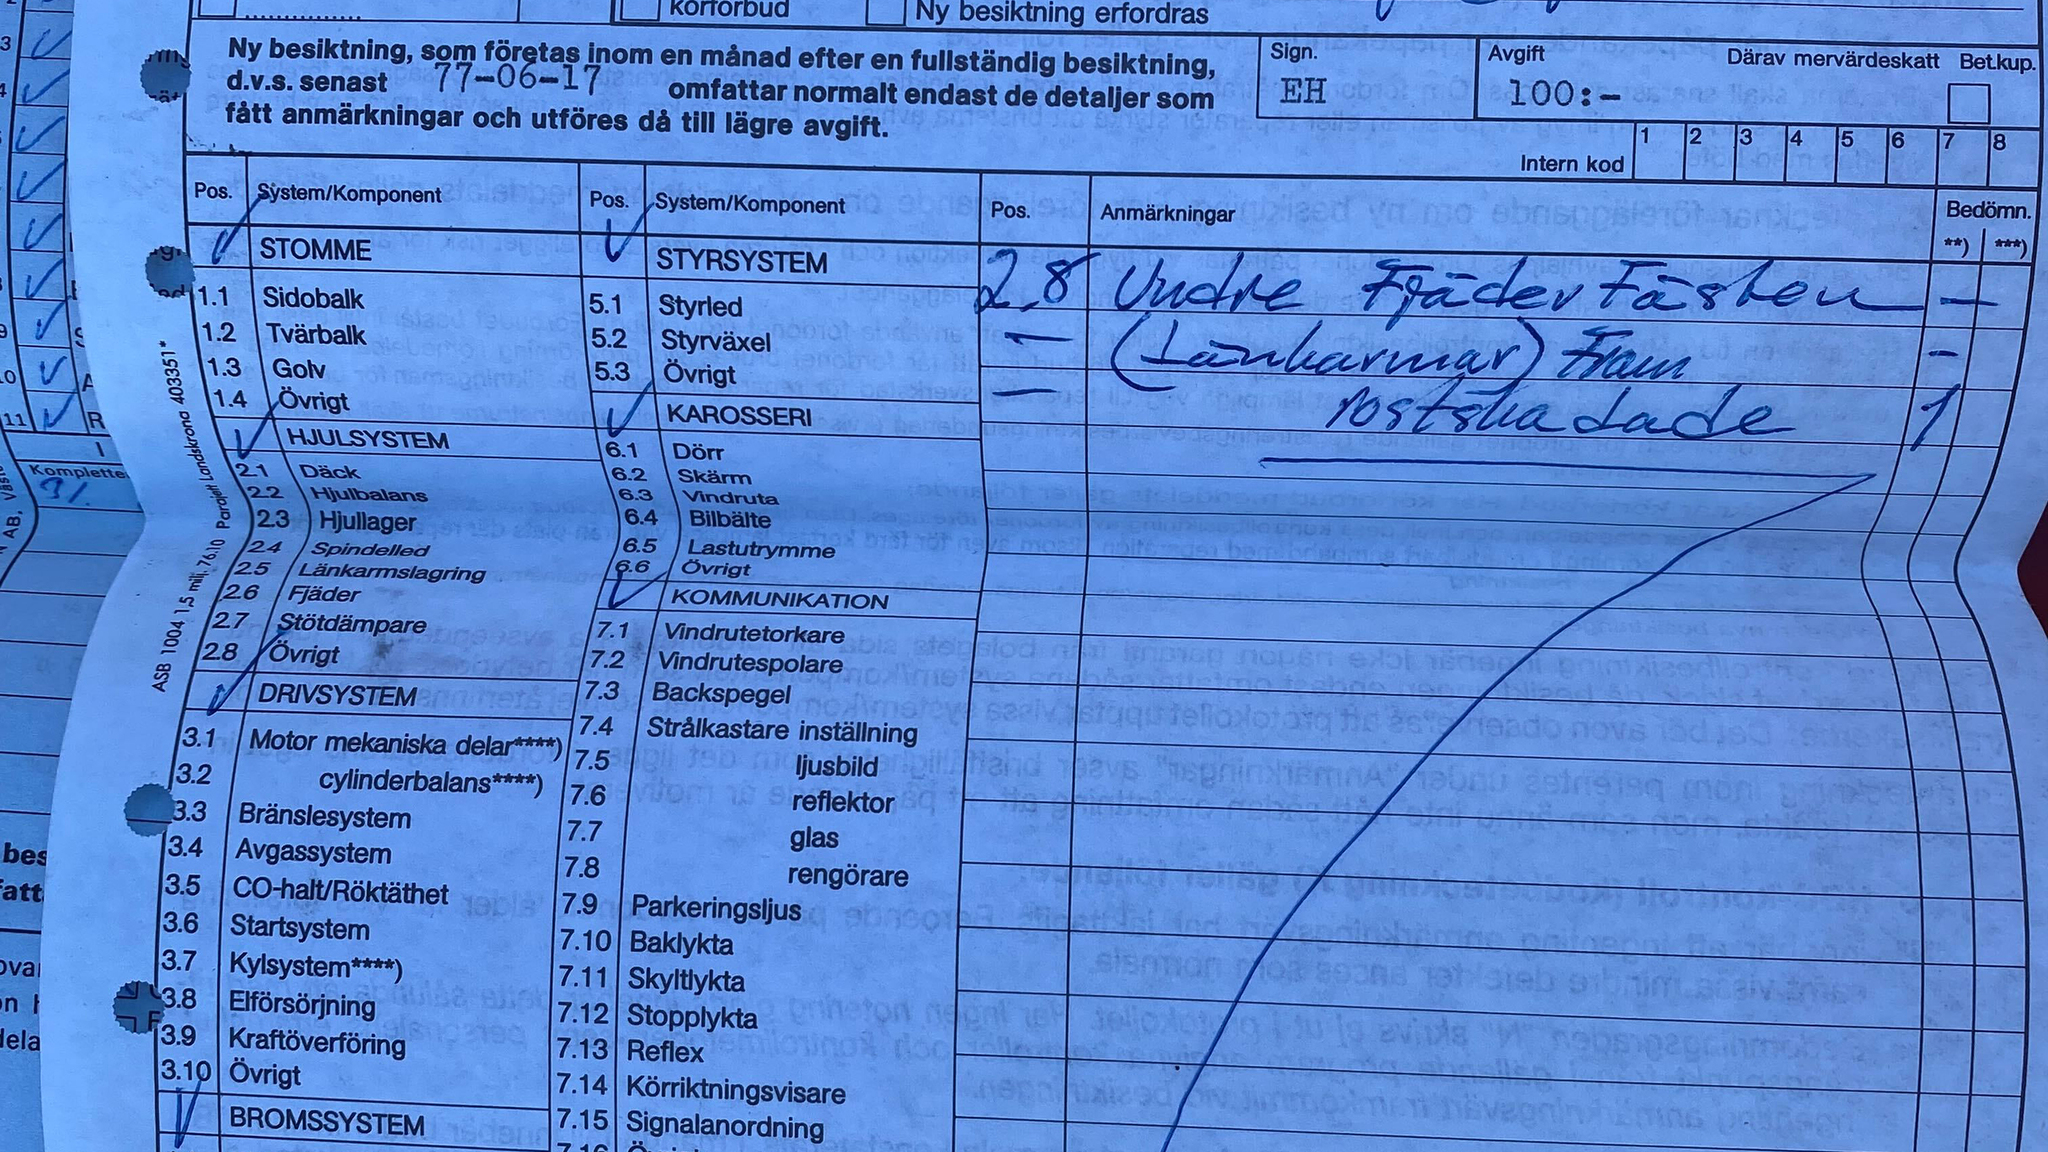 körförbud
Ny besiktning erfordras
Ny besiktning, som företas inom en månad efter en fullständig besiktning,
d.v.s. senast 77-06-17 omfattar normalt endast de detaljer som
fått anmärkningar och utföres då till lägre avgift.
Sign.
EH
Avgift
100:-
Därav mervärdeskatt
Bet.kup.
Intern kod 1 2 3 4 5 6 7 8
Pos. System/Komponent
STOMME
1.1 Sidobalk
1.2 Tvärbalk
1.3 Golv
1.4 Övrigt
HJULSYSTEM
2.1 Däck
2.2 Hjulbalans
2.3 Hjullager
2.4 Spindelled
2.5 Länkarmslagring
2.6 Fjäder
2.7 Stötdämpare
2.8 Övrigt
DRIVSYSTEM
3.1 Motor mekaniska delar****)
3.2 cylinderbalans****)
3.3 Bränslesystem
3.4 Avgassystem
3.5 CO-halt/Röktäthet
3.6 Startsystem
3.7 Kylsystem****)
3.8 Elförsörjning
3.9 Kraftöverföring
3.10 Övrigt
BROMSSYSTEM
Pos. System/Komponent
STYRSYSTEM
5.1 Styrled
5.2 Styrväxel
5.3 Övrigt
KAROSSERI
6.1 Dörr
6.2 Skärm
6.3 Vindruta
6.4 Bilbälte
6.5 Lastutrymme
6.6 Övrigt
KOMMUNIKATION
7.1 Vindrutetorkare
7.2 Vindrutespolare
7.3 Backspegel
7.4 Strålkastare inställning
7.5 ljusbild
7.6 reflektor
7.7 glas
7.8 rengörare
7.9 Parkeringsljus
7.10 Baklykta
7.11 Skyltlykta
7.12 Stopplykta
7.13 Reflex
7.14 Körriktningsvisare
7.15 Signalanordning
Pos. Anmärkningar Bedömn.
**) ***)
2.8 Undre Fjäderfästen -
- (Länkarmar) Fram -
- rostskadade 1
ASB 1004 1,5 milj. 76.10 Parajett Landskrona 403351*
Komplette